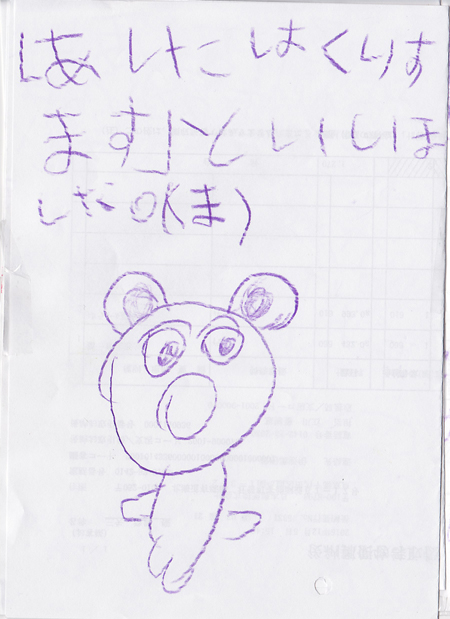 「あしたはくりす
ます」といいま
した。(ま)